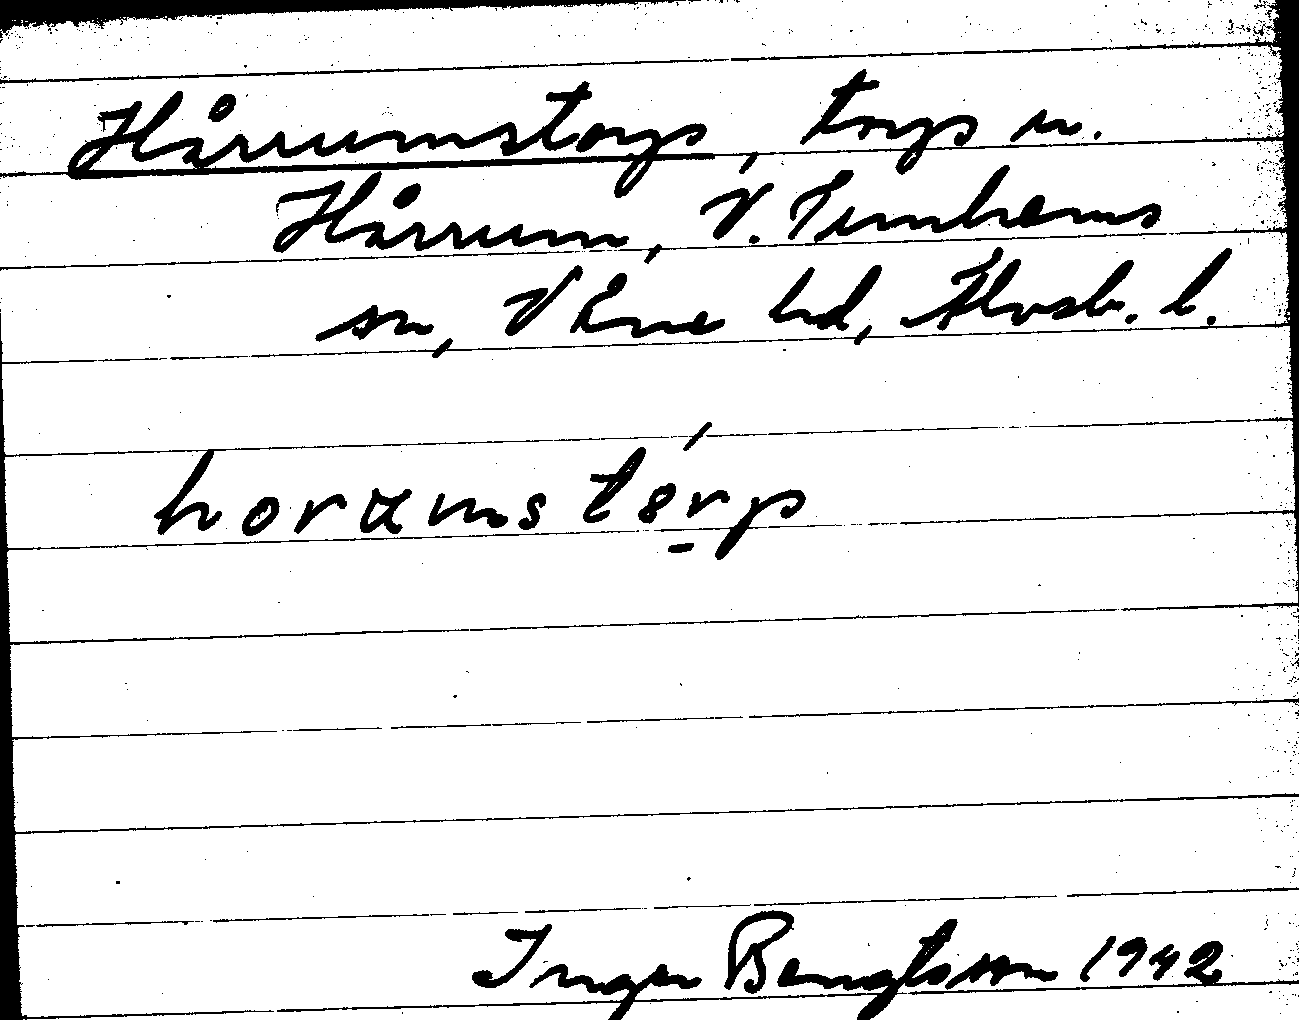 Hårrumstorp, torp u.
Hårrum, V. Tunhems
sn, Väne hd, Älvsb. l.
horαmstó̱rp
Inger Bengtsson 1942